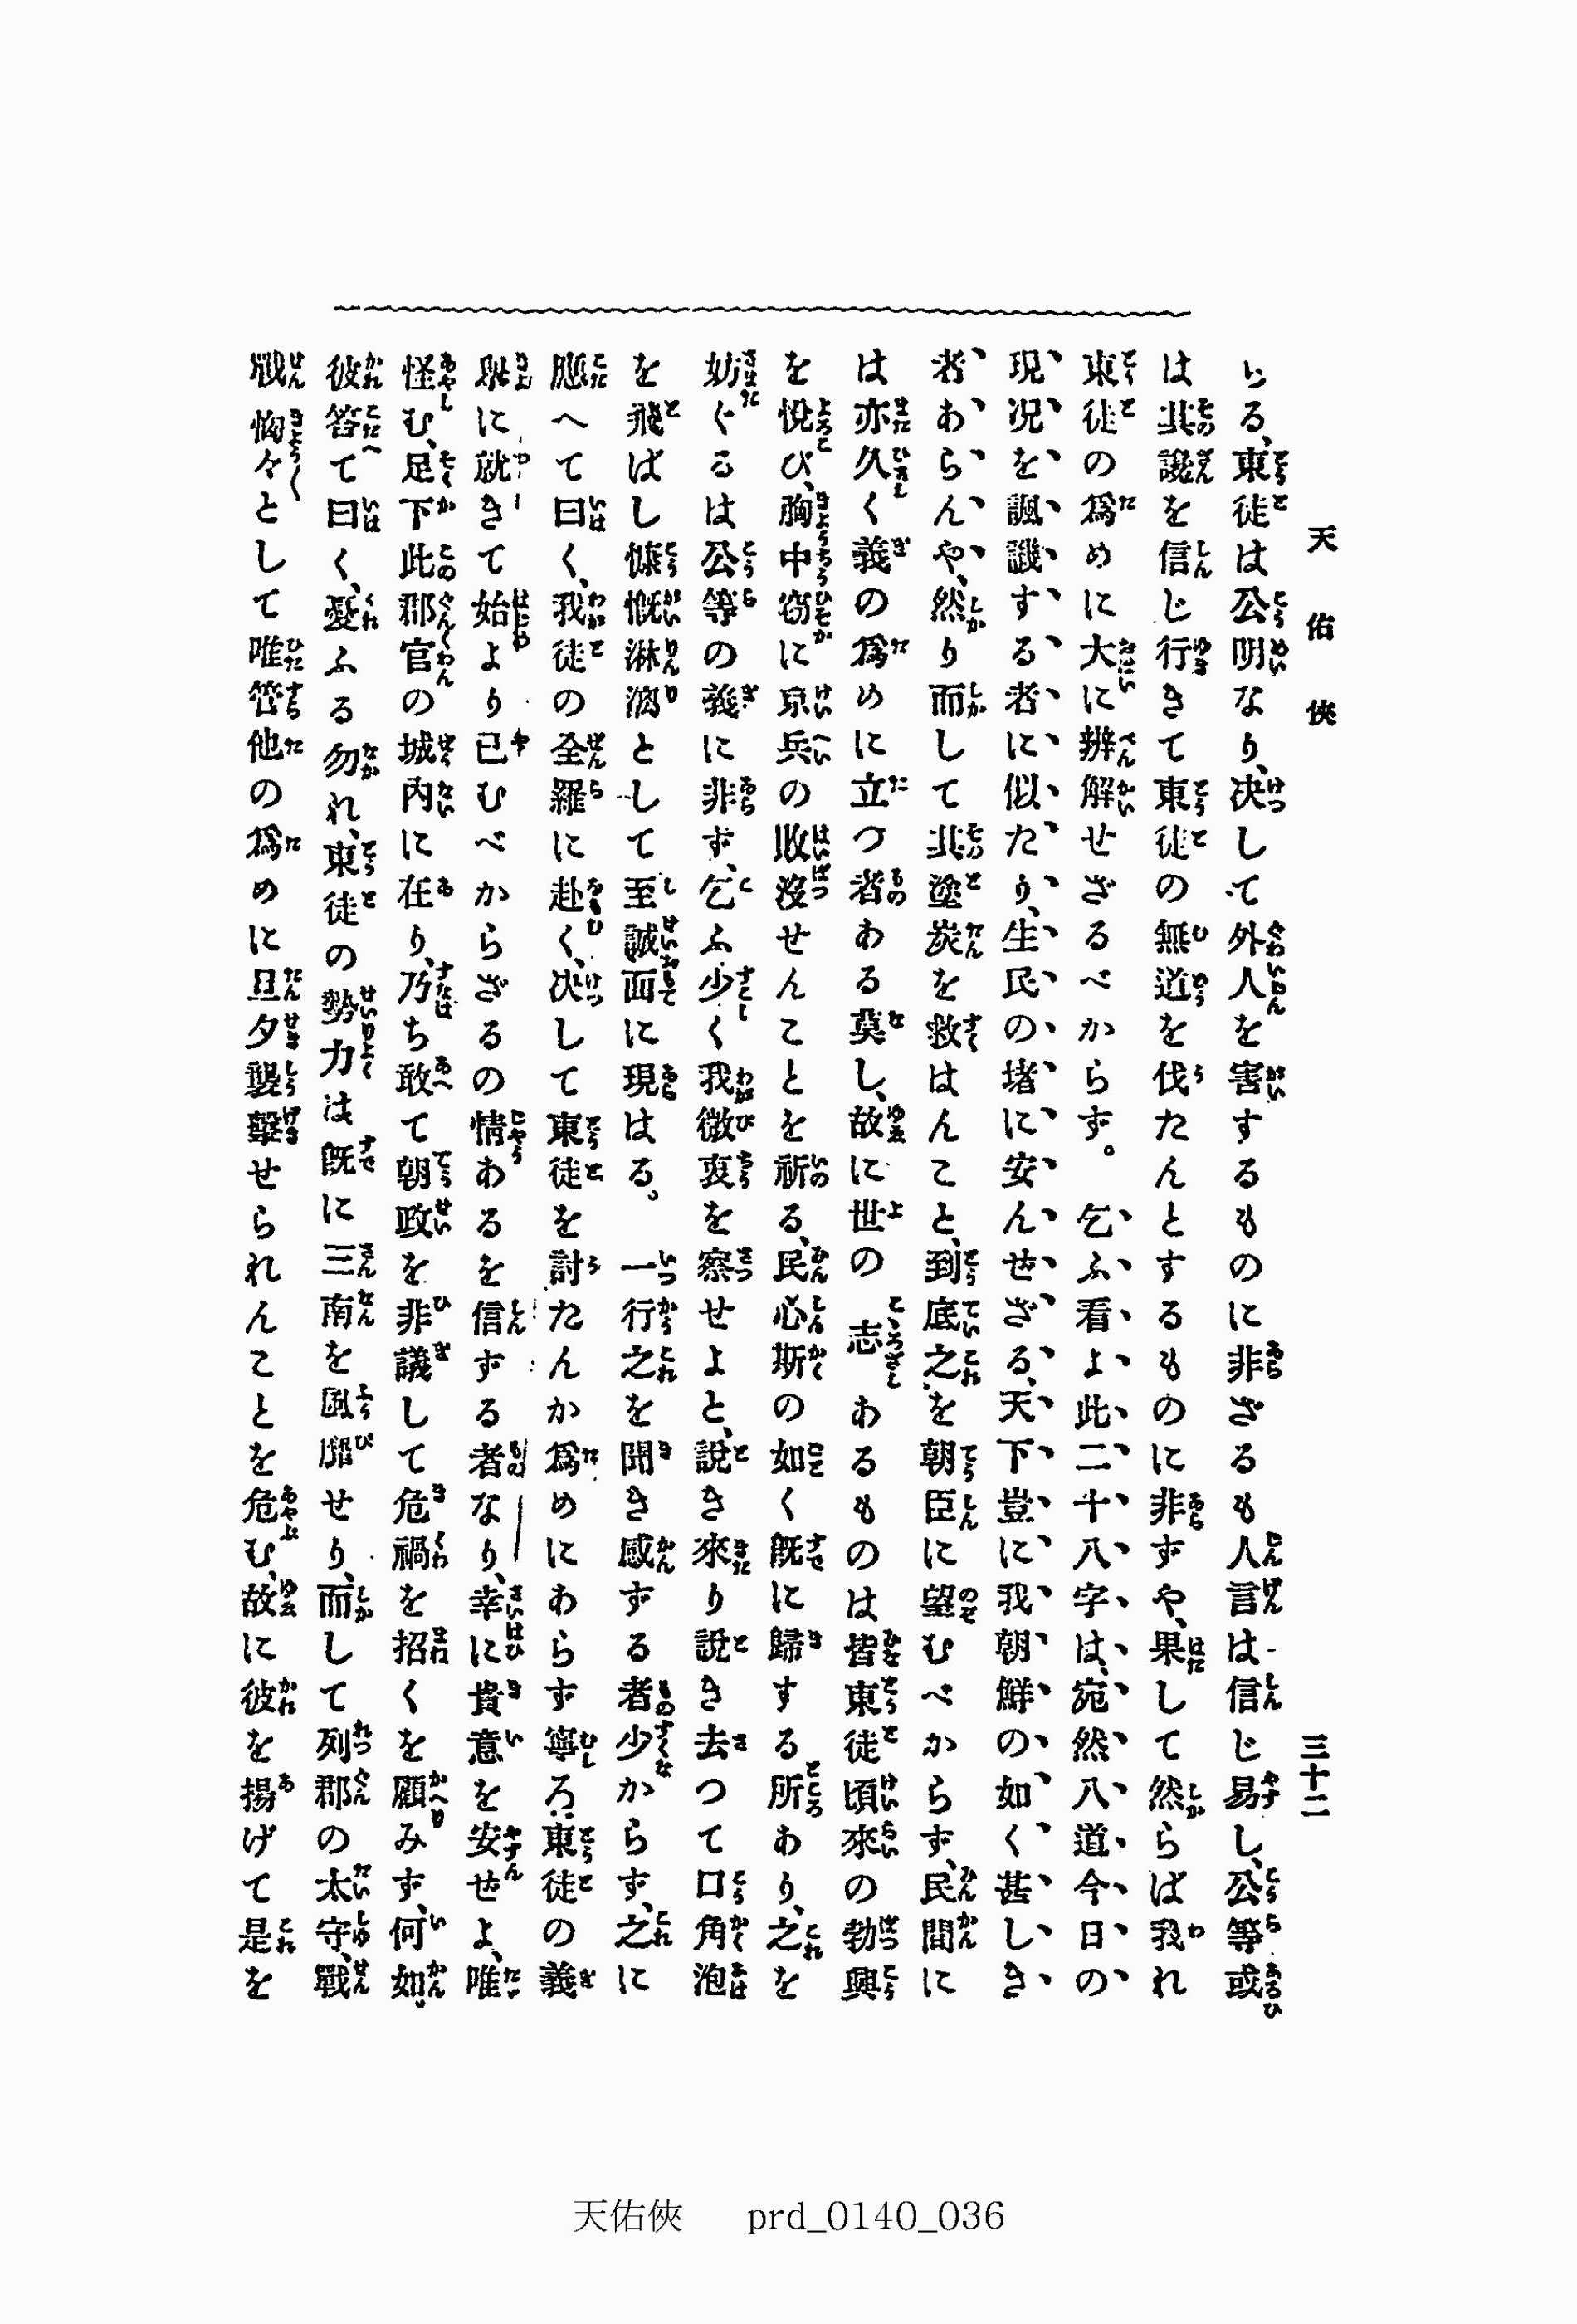 天佑俠
三十二
らる、東徒は公明なり、决して外人を害するものに非ざるも人言は信じ易し、公等或
は其讒を信じ行きて東徒の無道を伐たんとするものに非ずや、果して然らば我れ
東徒の爲めに大に辨解せざるべからず。乞ふ看よ此二十八字は、宛然八道今日の
現况を諷譏する者に似たり、生民の堵に安んせざる、天下豈に我朝鮮の如く甚しき
者あらんや、然り而して其塗炭を救はんこと、到底之を朝臣に望むべからず、民間に
は亦久く義の爲めに立つ者ある莫し、故に世の志あるものは皆東徒頃來の勃興
を悅び、胸中窃に京兵の敗沒せんことを祈る、民心斯の如く旣に歸する所あり、之を
妨ぐるは公等の義に非ず、乞ふ少く我微衷を察せよと、說き來り說き去つて口角泡
を飛ばし慷慨淋漓として至誠面に現はる。一行之を聞き感ずる者少からず、之に
應へて曰く、我徒の全羅に赴く、决して東徒を討たんか爲めにあらず寧ろ東徒の義
擧に就きて始より已むべからざるの情あるを信ずる者なり、幸に貴意を安せよ、唯
怪む、足下此郡官の城內に在り、乃ち敢て朝政を非議して危禍を招くを顧みず、何如
彼答て曰く、憂ふる勿れ、東徒の勢力は旣に三南を風靡せり、而して列郡の太守、戰
戰恟々として唯管他の爲めに旦夕襲擊せられんことを危む、故に彼を揚げて是を
天佑俠 prd_0140_036